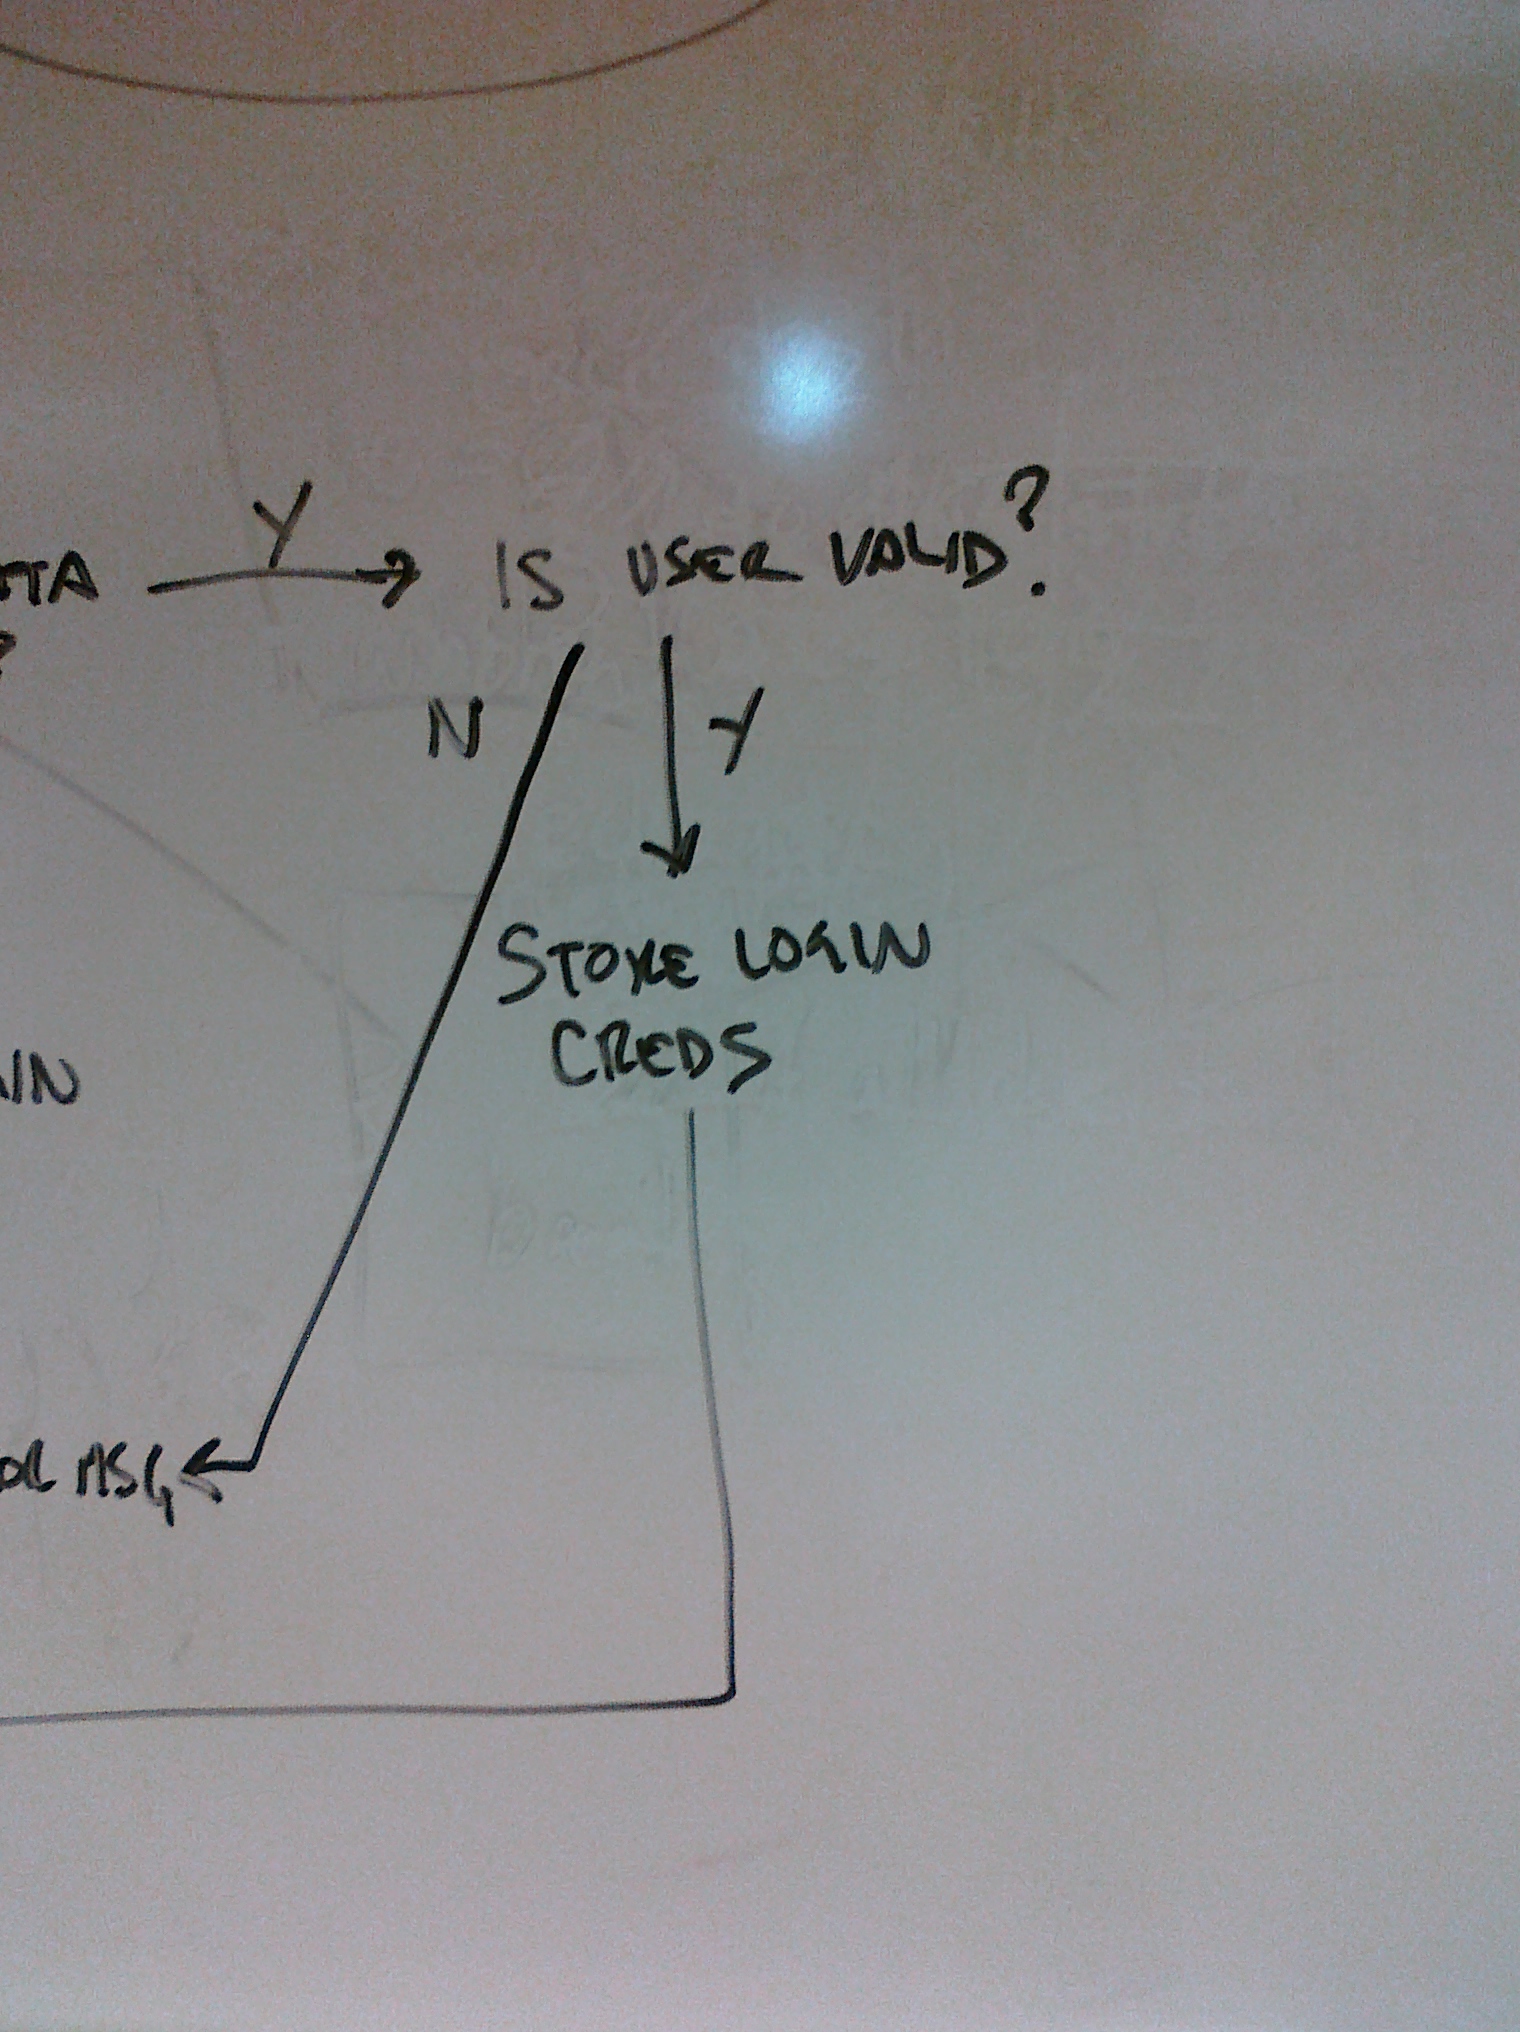 Y
IS USER VALID?
?
N
Y
STORE LOGIN
CREDS
MSG